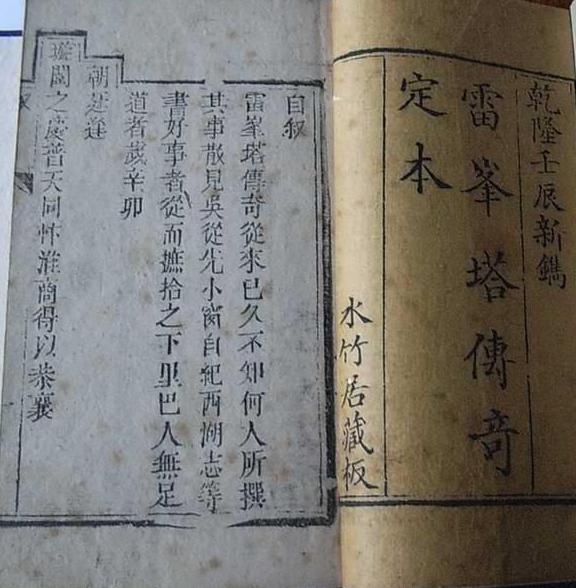 乾隆壬辰新鐫
雷峯塔傳奇
定本
水竹居藏板
自叙
雷峯塔傳奇從來已久不知何人所撰
其事散見吳從先小窗自紀西湖志等
書好事者從而摭拾之下里巴人無足
道者歲辛卯
朝廷逢
璇闈之慶普天同忭淮商得以恭襄